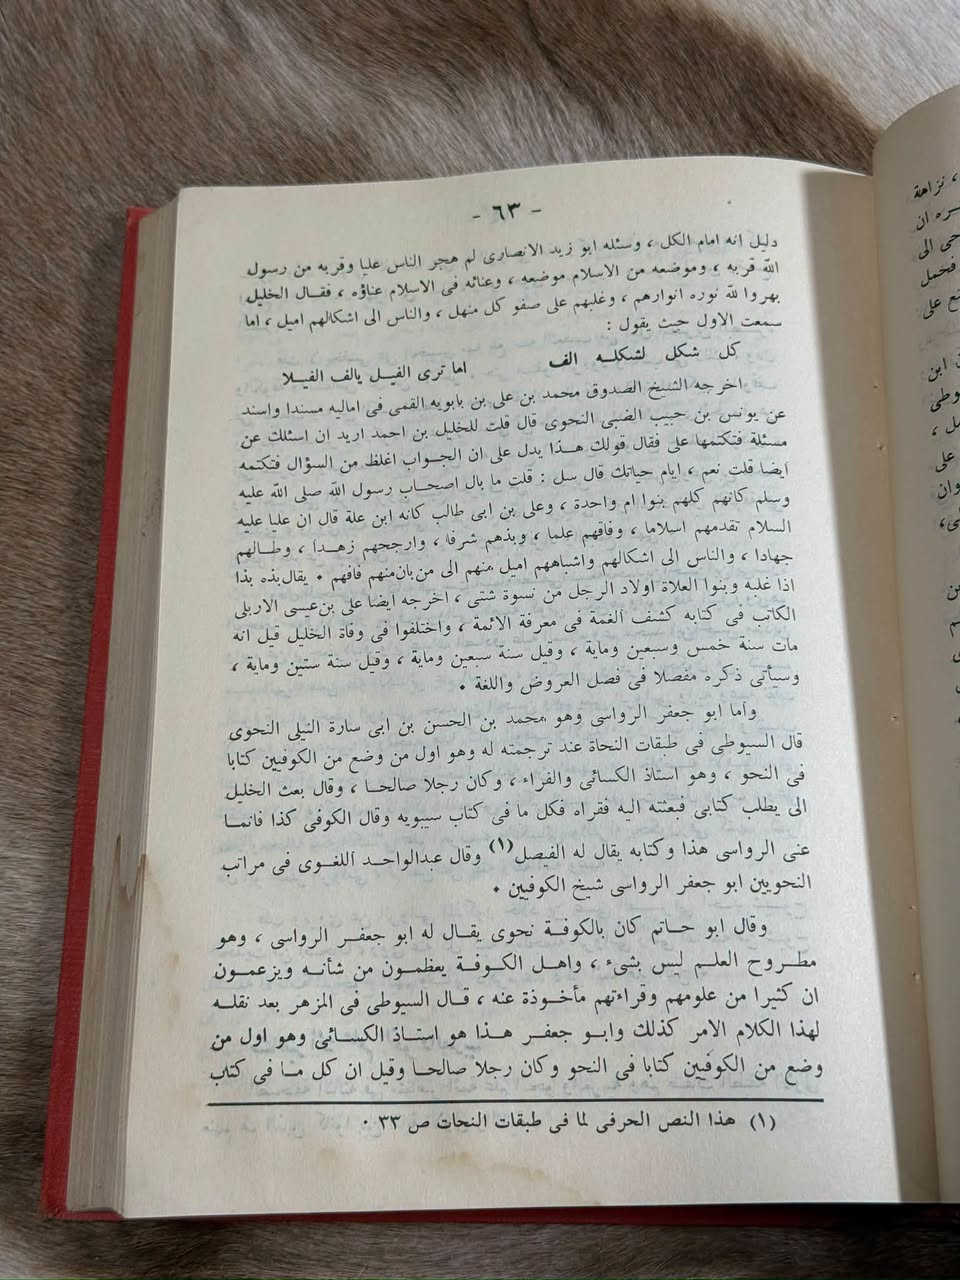 - ٦٣ -
دليل انه امام الكل ، وسئله ابو زيد الانصارى لم هجر الناس عليا وقربه من رسول
الله قربه ، وموضعه من الاسلام موضعه ، وعنائه فى الاسلام عناؤه ، فقال الخليل
بهروا لله نوره انوارهم ، وغلبهم على صفو كل منهل ، والناس الى اشكالهم اميل ، اما
سمعت الاول حيث يقول :
كل شكل لشكله الف اما ترى الفيل يالف الفيلا
اخرجه الشيخ الصدوق محمد بن على بن بابويه القمى فى اماليه مسندا واسند
عن يونس بن حبيب الضبى النحوى قال قلت للخليل بن احمد اريد ان اسئلك عن
مسئلة فتكتمها على فقال قولك هذا يدل على ان الجواب اغلظ من السؤال فتكتمه
ايضا قلت نعم ، ايام حياتك قال سل : قلت ما بال اصحاب رسول الله صلى الله عليه
وسلم كانهم كلهم بنوا ام واحدة ، وعلى بن ابى طالب كانه ابن علة قال ان عليا عليه
السلام تقدمهم اسلاما ، وفاقهم علما ، وبذهم شرفا ، وارجحهم زهدا ، وطالهم
جهادا ، والناس الى اشكالهم واشباههم اميل منهم الى من بان منهم فافهم • يقال بذه بذا
اذا غلبه وبنوا العلاة اولاد الرجل من نسوة شتى ، اخرجه ايضا على بن عيسى الاربلى
الكاتب فى كتابه كشف الغمة فى معرفة الائمة ، واختلفوا فى وفاة الخليل قيل انه
مات سنة خمس وسبعين وماية ، وقيل سنة سبعين وماية ، وقيل سنة ستين وماية ،
وسيأتى ذكره مفصلا فى فصل العروض واللغة •
وأما ابو جعفر الرواسى وهو محمد بن الحسن بن ابى سارة النيلى النحوى
قال السيوطى فى طبقات النحاة عند ترجمته له وهو اول من وضع من الكوفيين كتابا
فى النحو ، وهو استاذ الكسائى والفراء ، وكان رجلا صالحا ، وقال بعث الخليل
الى يطلب كتابى فبعثته اليه فقراه فكل ما فى كتاب سيبويه وقال الكوفى كذا فانما
عنى الرواسى هذا وكتابه يقال له الفيصل(١) وقال عبدالواحد اللغوى فى مراتب
النحويين ابو جعفر الرواسى شيخ الكوفيين •
وقال ابو حاتم كان بالكوفة نحوى يقال له ابو جعفر الرواسى ، وهو
مطروح العلم ليس بشىء ، واهل الكوفة يعظمون من شأنه ويزعمون
ان كثيرا من علومهم وقراءتهم مأخوذة عنه ، قال السيوطى فى المزهر بعد نقله
لهذا الكلام الامر كذلك وابو جعفر هذا هو استاذ الكسائى وهو اول من
وضع من الكوفيين كتابا فى النحو وكان رجلا صالحا وقيل ان كل ما فى كتاب
(١) هذا النص الحرفى لما فى طبقات النحات ص ٣٣ •
، نزاهة